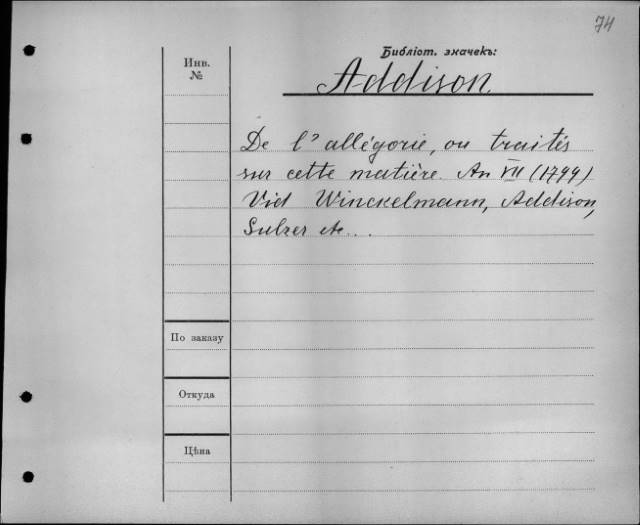 74
Библіот. значекъ:
Инв.
№
Addison
De l'allégorie, ou traités
sur cette matière. An VII (1799)
Vid Winckelmann, Addison,
Sulzer etc...
По заказу
Откуда
Цѣна